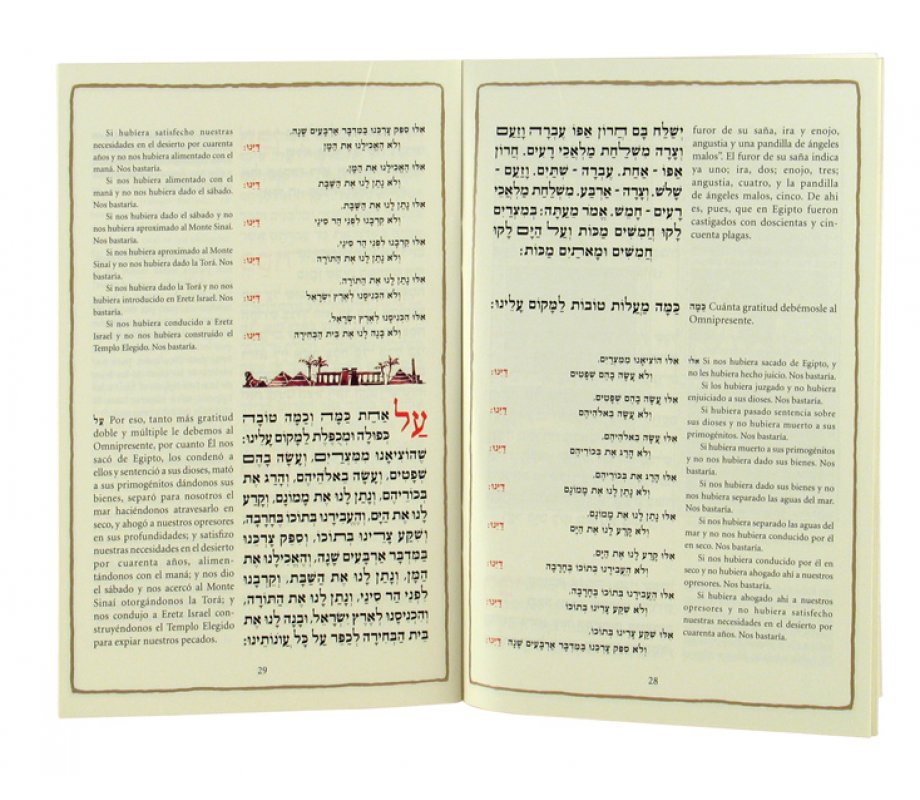 יִשְׁלַּח בָּם חֲרוֹן אַפּוֹ עֶבְרָה וָזַעַם
וְצָרָה מִשְׁלַחַת מַלְאֲכֵי רָעִים. חֲרוֹן
אַפּוֹ - אַחַת. עֶבְרָה - שְׁתַּיִם. וָזַעַם -
שָׁלֹשׁ. וְצָרָה - אַרְבַּע. מִשְׁלַחַת מַלְאֲכֵי
רָעִים - חָמֵשׁ. אֱמֹר מֵעַתָּה: בְּמִצְרַיִם
לָקוּ חֲמִשִּׁים מַכּוֹת וְעַל הַיָּם לָקוּ
חֲמִשִּׁים וּמָאתַיִם מַכּוֹת:
furor de su saña, ira y enojo,
angustia y una pandilla de ángeles
malos". El furor de su saña indica
ya uno; ira, dos; enojo, tres;
angustia, cuatro, y la pandilla
de ángeles malos, cinco. De ahí
es, pues, que en Egipto fueron
castigados con doscientas y cin-
cuenta plagas.
כַּמָּה מַעֲלוֹת טוֹבוֹת לַמָּקוֹם עָלֵינוּ:
כַּמָּה Cuánta gratitud debémosle al
Omnipresente.
אִלּוּ הוֹצִיאָנוּ מִמִּצְרַיִם.
וְלֹא עָשָׂה בָהֶם שְׁפָטִים דַּיֵּנוּ:
אִלּוּ עָשָׂה בָהֶם שְׁפָטִים.
וְלֹא עָשָׂה בֵאלֹהֵיהֶם דַּיֵּנוּ:
אִלּוּ עָשָׂה בֵאלֹהֵיהֶם.
וְלֹא הָרַג אֶת בְּכוֹרֵיהֶם דַּיֵּנוּ:
אִלּוּ הָרַג אֶת בְּכוֹרֵיהֶם.
וְלֹא נָתַן לָנוּ אֶת מָמוֹנָם דַּיֵּנוּ:
אִלּוּ נָתַן לָנוּ אֶת מָמוֹנָם.
וְלֹא קָרַע לָנוּ אֶת הַיָּם דַּיֵּנוּ:
אִלּוּ קָרַע לָנוּ אֶת הַיָּם.
וְלֹא הֶעֱבִירָנוּ בְתוֹכוֹ בֶּחָרָבָה דַּיֵּנוּ:
אִלּוּ הֶעֱבִירָנוּ בְתוֹכוֹ בֶּחָרָבָה.
וְלֹא שִׁקַּע צָרֵינוּ בְתוֹכוֹ דַּיֵּנוּ:
אִלּוּ שִׁקַּע צָרֵינוּ בְתוֹכוֹ.
וְלֹא סִפֵּק צָרְכֵּנוּ בַּמִּדְבָּר אַרְבָּעִים שָׁנָה דַּיֵּנוּ:
אִלּוּ Si nos hubiera sacado de Egipto, y
no les hubiera hecho juicio. Nos bastaría.
Si los hubiera juzgado y no hubiera
enjuiciado a sus dioses. Nos bastaría.
Si hubiera pasado sentencia sobre
sus dioses y no hubiera muerto a sus
primogénitos. Nos bastaría.
Si hubiera muerto a sus primogénitos
y no nos hubiera dado sus bienes. Nos
bastaría.
Si nos hubiera dado sus bienes y no
nos hubiera separado las aguas del mar.
Nos bastaría.
Si nos hubiera separado las aguas del
mar y no nos hubiera conducido por él
en seco. Nos bastaría.
Si nos hubiera conducido por él en
seco y no hubiera ahogado ahí a nuestros
opresores. Nos bastaría.
Si hubiera ahogado ahí a nuestros
opresores y no hubiera satisfecho
nuestras necesidades en el desierto por
cuarenta años. Nos bastaría.
28
אִלּוּ סִפֵּק צָרְכֵּנוּ בַּמִּדְבָּר אַרְבָּעִים שָׁנָה.
וְלֹא הֶאֱכִילָנוּ אֶת הַמָּן דַּיֵּנוּ:
אִלּוּ הֶאֱכִילָנוּ אֶת הַמָּן.
וְלֹא נָתַן לָנוּ אֶת הַשַּׁבָּת דַּיֵּנוּ:
אִלּוּ נָתַן לָנוּ אֶת הַשַּׁבָּת.
וְלֹא קֵרְבָנוּ לִפְנֵי הַר סִינַי דַּיֵּנוּ:
אִלּוּ קֵרְבָנוּ לִפְנֵי הַר סִינַי.
וְלֹא נָתַן לָנוּ אֶת הַתּוֹרָה דַּיֵּנוּ:
אִלּוּ נָתַן לָנוּ אֶת הַתּוֹרָה.
וְלֹא הִכְנִיסָנוּ לְאֶרֶץ יִשְׂרָאֵל דַּיֵּנוּ:
אִלּוּ הִכְנִיסָנוּ לְאֶרֶץ יִשְׂרָאֵל.
וְלֹא בָנָה לָנוּ אֶת בֵּית הַבְּחִירָה דַּיֵּנוּ:
Si hubiera satisfecho nuestras
necesidades en el desierto por cuarenta
años y no nos hubiera alimentado con el
maná. Nos bastaría.
Si nos hubiera alimentado con el
maná y no nos hubiera dado el sábado.
Nos bastaría.
Si nos hubiera dado el sábado y no
nos hubiera aproximado al Monte Sinaí.
Nos bastaría.
Si nos hubiera aproximado al Monte
Sinaí y no nos hubiera dado la Torá. Nos
bastaría.
Si nos hubiera dado la Torá y no nos
hubiera introducido en Eretz Israel. Nos
bastaría.
Si nos hubiera conducido a Eretz
Israel y no nos hubiera construido el
Templo Elegido. Nos bastaría.
עַל אַחַת כַּמָּה וְכַמָּה טוֹבָה
כְפוּלָה וּמְכֻפֶּלֶת לַמָּקוֹם עָלֵינוּ:
שֶׁהוֹצִיאָנוּ מִמִּצְרַיִם, וְעָשָׂה בָהֶם
שְׁפָטִים, וְעָשָׂה בֵאלֹהֵיהֶם, וְהָרַג אֶת
בְּכוֹרֵיהֶם, וְנָתַן לָנוּ אֶת מָמוֹנָם, וְקָרַע
לָנוּ אֶת הַיָּם, וְהֶעֱבִירָנוּ בְתוֹכוֹ בֶּחָרָבָה,
וְשִׁקַּע צָרֵינוּ בְּתוֹכוֹ, וְסִפֵּק צָרְכֵּנוּ
בַּמִּדְבָּר אַרְבָּעִים שָׁנָה, וְהֶאֱכִילָנוּ אֶת
הַמָּן, וְנָתַן לָנוּ אֶת הַשַּׁבָּת, וְקֵרְבָנוּ
לִפְנֵי הַר סִינַי, וְנָתַן לָנוּ אֶת הַתּוֹרָה,
וְהִכְנִיסָנוּ לְאֶרֶץ יִשְׂרָאֵל, וּבָנָה לָנוּ אֶת
בֵּית הַבְּחִירָה לְכַפֵּר עַל כָּל עֲוֹנוֹתֵינוּ:
עַל Por eso, tanto más gratitud
doble y múltiple le debemos al
Omnipresente, por cuanto Él nos
sacó de Egipto, los condenó a
ellos y sentenció a sus dioses, mató
a sus primogénitos dándonos sus
bienes, separó para nosotros el
mar haciéndonos atravesarlo en
seco, y ahogó a nuestros opresores
en sus profundidades; y satisfizo
nuestras necesidades en el desierto
por cuarenta años, alimen-
tándonos con el maná; y nos dio
el sábado y nos acercó al Monte
Sinaí otorgándonos la Torá; y
nos condujo a Eretz Israel cons-
truyéndonos el Templo Elegido
para expiar nuestros pecados.
29